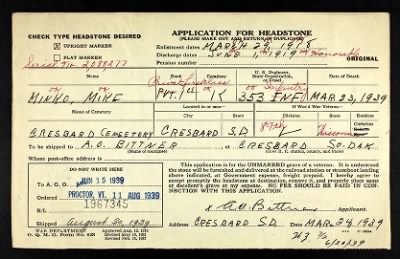 CHECK TYPE HEADSTONE DESIRED
APPLICATION FOR HEADSTONE
(PLEASE MAKE OUT AND RETURN IN DUPLICATE)
UPRIGHT MARKER
FLAT MARKER
Enlistment dates MARCH 29, 1918
Discharge dates JUNE 1, 1919 Honorable
Pension number
ORIGINAL
Serial No. 2088377
Name
Rank
Company
MINKO, MIKE
PVT. 1 CL. K
353 INF.
MAR 23, 1939
Name of Cemetery
Located in or near—
If World War Veteran—
CRESBARD CEMETERY
CRESBARD S.D.
89th
To be shipped to A.O. BITTNER at CRESBARD SO. DAK
Whose post-office address is
DO NOT WRITE HERE
To A. G. O. JUN 15 1939
PROCTOR, VT. 11 AUG 1939
Ordered 1967345
Shipped August 30, 1939
This application is for the UNMARKED grave of a veteran. It is understood
the stone will be furnished and delivered at the railroad station or steamboat landing
above indicated, at Government expense, freight prepaid. I hereby agree to
accept promptly the headstone at destination, remove it and properly place same
at decedent's grave at my expense. NO FEE SHOULD BE PAID IN CONNECTION
WITH THIS APPLICATION.
A.O. Bittner Applicant.
Address CRESBARD S.D. Date MAR. 24, 1939
O. Q. M. G. Form No. 623
6/20/39